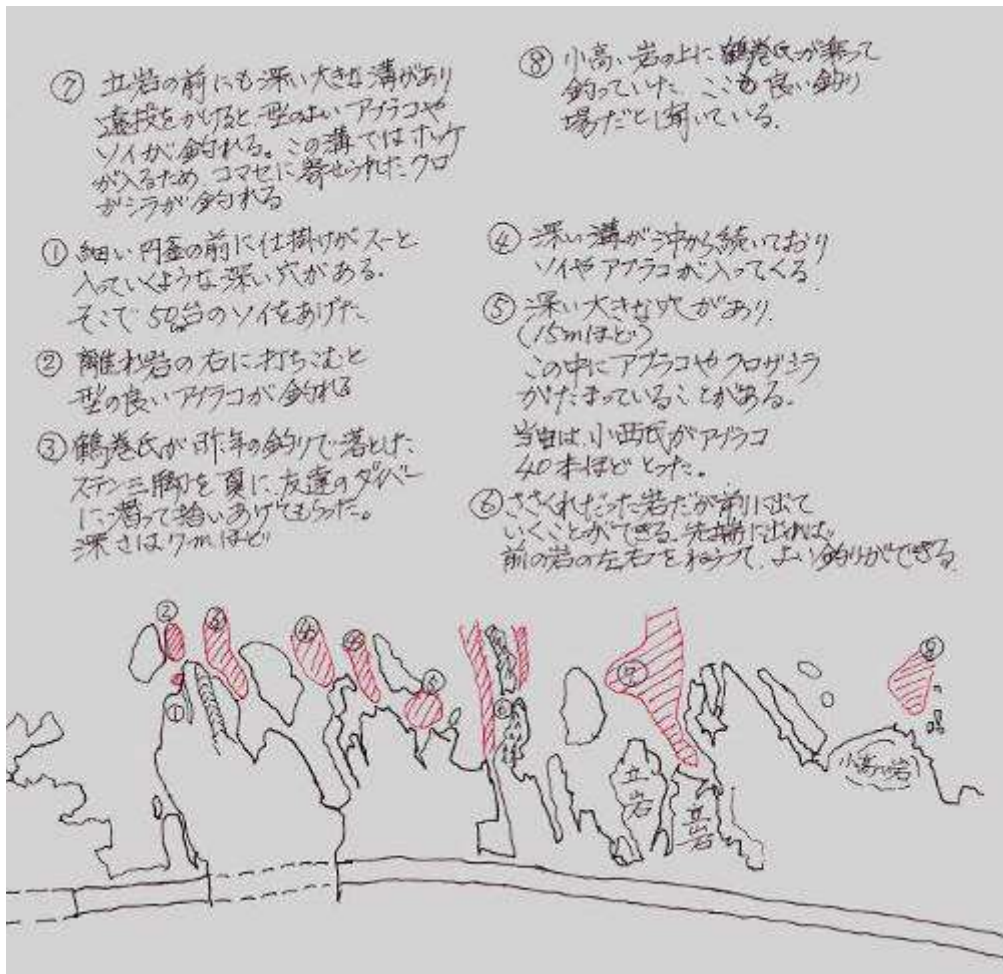 ⑦ 立岩の前にも深い大きな溝があり
遠投をかけると型のよいアブラコや
ソイが釣れる。この溝ではホッケ
が入るため コマセに寄せられたクロ
ガシラが釣れる
① 細い円釜の前に仕掛けがスーと
入っていくような深い穴がある。
そこで50cm台のソイをあげた
② 離れ岩の右に打ちこむと
型の良いアブラコが釣れる
③ 鶴巻氏が昨年の釣りで落とした
ステン三脚を夏に友達のダイバー
に潜って拾いあげてもらった。
深さは7mほど
⑧ 小高い岩の上に鶴巻氏が乗って
釣っていた ここも良い釣り
場だと聞いている.
④ 深い溝が沖から続いており
ソイやアブラコが入ってくる
⑤ 深い大きな穴があり.
(15mほど)
この中にアブラコやクロガシラ
がたまっていることがある.
当日は小西氏がアブラコ
40本ほどとった。
⑥ ささくれだった岩だが前に出て
いくことができる 先端に出れば
前の岩の左右をねらって よい釣りができる
② ③ ④ ④ ⑤ ⑥ ⑦ ⑧
①
立岩
立岩
小高い岩